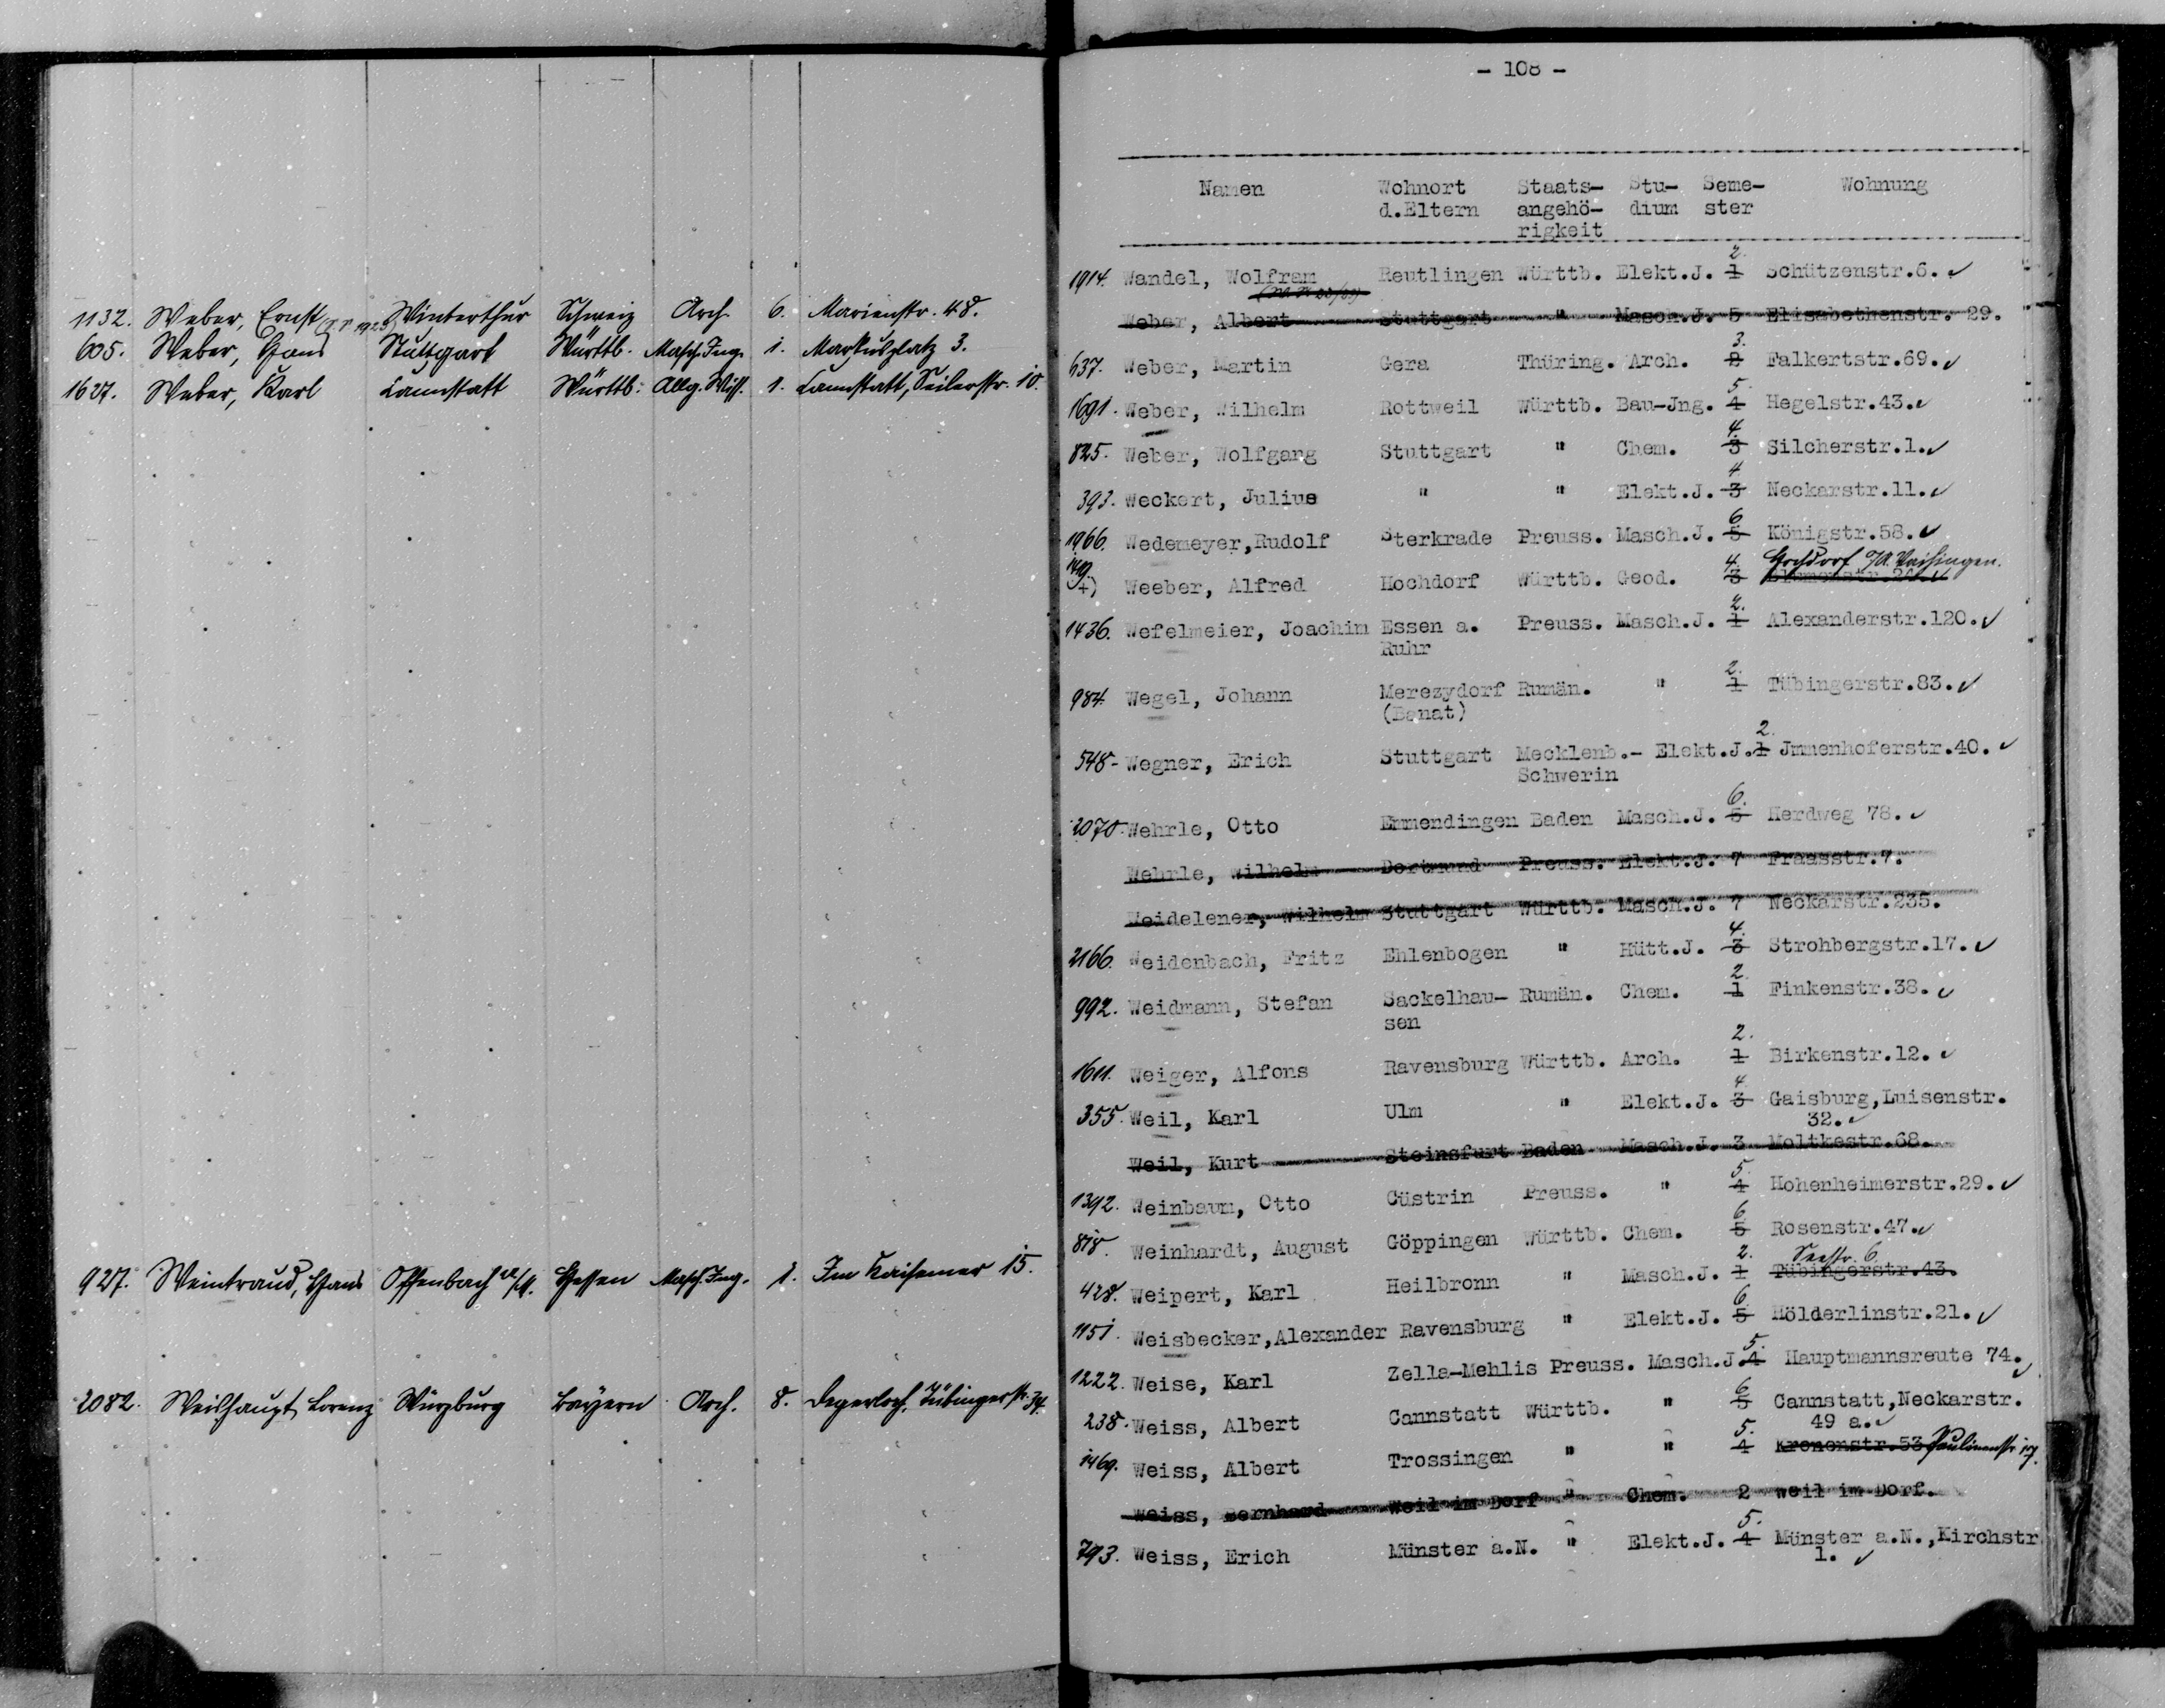 1132. Weber, Ernst Winterthur Schweiz Arch. 6. Marienstr. 48.
605. Weber, Hans Stuttgart Württb. Masch.Ing. 1. Markusplatz 3.
1627. Weber, Karl Cannstatt Württb. Allg. Wiss. 1. Cannstatt, Seilerstr. 10.
927. Weintraud, Hans Offenbach a/M. Hessen Masch.Ing. 1. Im Kaisemer 15.
2082. Weishaupt, Lorenz Würzburg Bayern Arch. 8. Degerloch, Tübingerstr. 34.
- 108 -
Namen Wohnort Staats- Stu- Seme- Wohnung
d.Eltern angehö- dium ster
rigkeit
1914. Wandel, Wolfram Reutlingen Württb. Elekt.J. 1 2. Schützenstr.6.
Weber, Albert Stuttgart " Masch.J. 5 Elisabethenstr. 29.
637. Weber, Martin Gera Thüring. Arch. 2 3. Falkertstr.69.
1691. Weber, Wilhelm Rottweil Württb. Bau-Jng. 4 5. Hegelstr.43.
825. Weber, Wolfgang Stuttgart " Chem. 3 4. Silcherstr.1.
393. Weckert, Julius " " Elekt.J. 3 4 Neckarstr.11.
1966. Wedemeyer,Rudolf Sterkrade Preuss. Masch.J. 5 6. Königstr.58.
Weeber, Alfred Hochdorf Württb. Geod. 3 4. Hochdorf O/A. Vaihingen.
1436. Wefelmeier, Joachim Essen a. Preuss. Masch.J. 1 2. Alexanderstr.120.
Ruhr
984. Wegel, Johann Merezydorf Rumän. " 1 2. Tübingerstr.83.
(Banat)
548. Wegner, Erich Stuttgart Mecklenb.- Elekt.J. 1 2. Jmmenhoferstr.40.
Schwerin
2070. Wehrle, Otto Emmendingen Baden Masch.J. 5 6. Herdweg 78.
Wehrle, Wilhelm Dortmund Preuss. Elekt.J. 7 Fraasstr.7.
Weidelener, Wilhelm Stuttgart Württb. Masch.J. 7 Neckarstr.235.
2166. Weidenbach, Fritz Ehlenbogen " Hütt.J. 3 4. Strohbergstr.17.
992. Weidmann, Stefan Sackelhau- Rumän. Chem. 1 2. Finkenstr.38.
sen
1611. Weiger, Alfons Ravensburg Württb. Arch. 1 2. Birkenstr.12.
355. Weil, Karl Ulm " Elekt.J. 3 4. Gaisburg,Luisenstr.
32.
Weil, Kurt Steinsfurt Baden Masch.J. 3 Moltkestr.68.
1392. Weinbaum, Otto Cüstrin Preuss. " 4 5. Hohenheimerstr.29.
818. Weinhardt, August Göppingen Württb. Chem. 5 6 Rosenstr.47.
428. Weipert, Karl Heilbronn " Masch.J. 1 2. Tübingerstr.43. Seestr. 6
1151. Weisbecker,Alexander Ravensburg " Elekt.J. 5 6. Hölderlinstr.21.
1222. Weise, Karl Zella-Mehlis Preuss. Masch.J. 4 5. Hauptmannsreute 74.
238. Weiss, Albert Cannstatt Württb. " 5 6 Cannstatt,Neckarstr.
49 a.
1469. Weiss, Albert Trossingen " " 4 5. Kronenstr.53 Paulinenstr. 17.
Weiss, Bernhard Weil im Dorf " Chem. 2 Weil im Dorf.
793. Weiss, Erich Münster a.N. " Elekt.J. 4 5. Münster a.N.,Kirchstr
1.